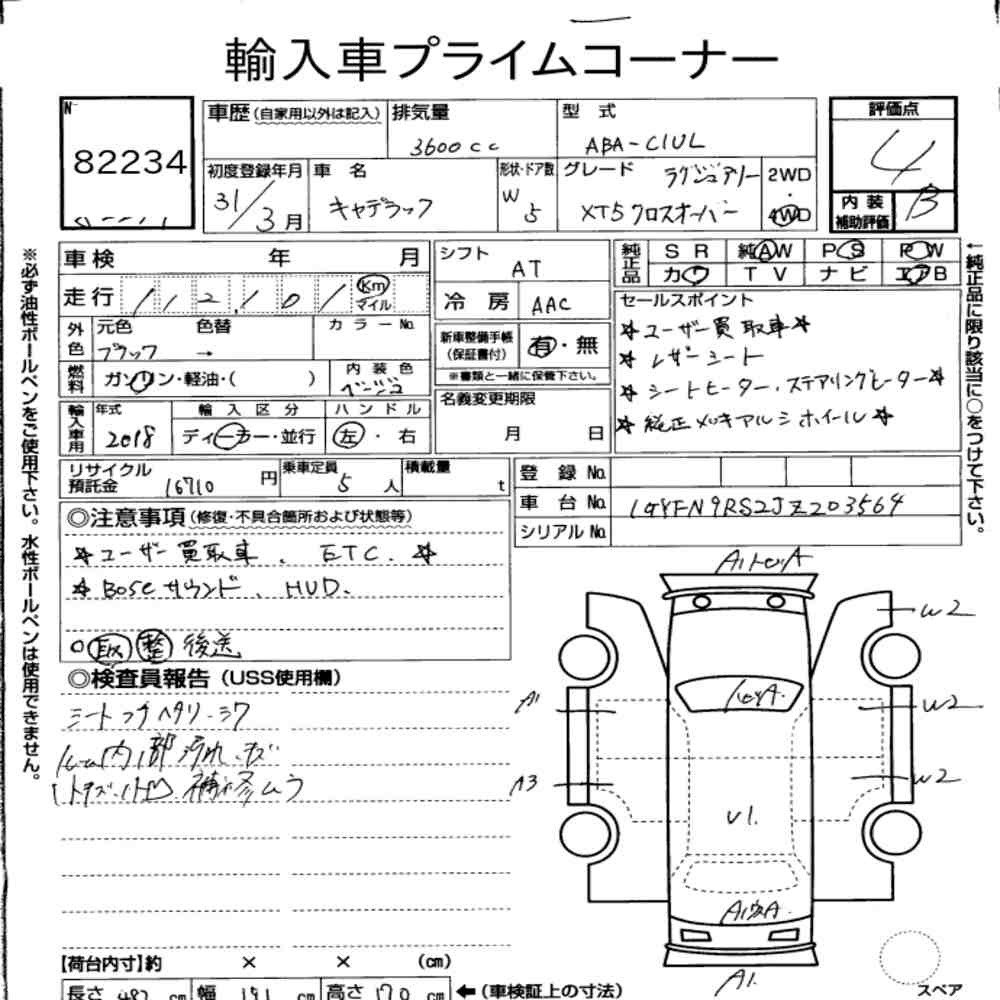 輸入車プライムコーナー
№
82234
車歴(自家用以外は記入)
排気量
3600cc
型 式
ABA-C1UL
評価点
4
初度登録年月
31/3月
車 名
キャデラック
形状・ドア数
W 5
グレード
ラグジュアリー
XT5クロスオーバー
2WD
・
4WD
内 装
補助評価
B
車検 年 月
走行 112,101 Km マイル
シフト
AT
冷 房
AAC
純正品
SR 純AW PS PW
カワ TV ナビ エアB
外色
元色 色替
ブラック →
カラーNo.
新車整備手帳
(保証書付)
有・無
※書類と一緒に保管下さい。
セールスポイント
☆ユーザー買取車☆
☆レザーシート
☆シートヒーター、ステアリングヒーター☆
☆純正メッキアルミホイール☆
燃料
ガソリン・軽油・( )
内 装 色
ベージュ
名義変更期限
月 日
輸入車用
年式
2018
輸 入 区 分
ディーラー・並行
ハ ン ド ル
左・右
リサイクル
預託金
16710円
乗車定員
5人
積載量
t
登 録 No.
車 台 No. 1GYFN9RS2JZ203564
シリアル No.
◎注意事項(修復・不具合箇所および状態等)
☆ユーザー買取車、ETC.☆
☆BOSEサウンド、HUD.
○取 整 後送
◎検査員報告(USS使用欄)
シートコゲ ヘタリ・シワ
内部汚れ・キズ
補修ムラ
A1
W2
A1
W2
A3
W2
U1.
A1
A1.
【荷台内寸】約 × × (cm)
長さ 482 cm 幅 191 cm 高さ 170 cm ←(車検証上の寸法)
スペア
※必ず油性ボールペンをご使用下さい。水性ボールペンは使用できません。
←純正品に限り該当に○をつけて下さい。